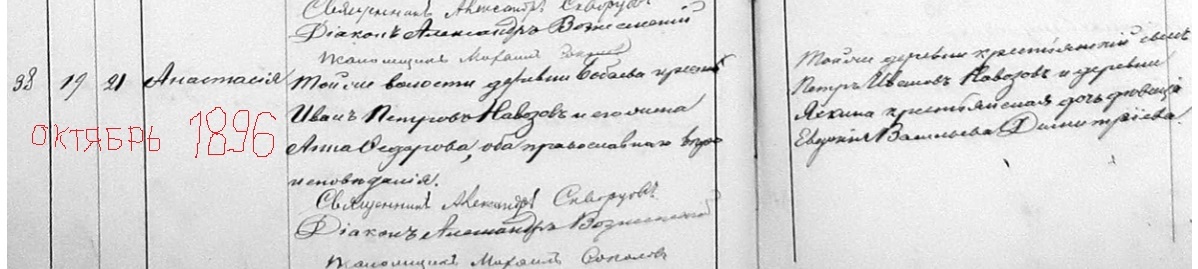 Священникъ Александръ Скворцовъ
Діаконъ Александръ Вознесенскій
Псаломщикъ Михаилъ
38 19 21 Анастасія
Той же волости деревни Бабаева крест
Иванъ Петровъ Навозовъ и его жена
Анна Ѳедорова, оба православнаго вѣро
исповѣданія.
Священникъ Александръ Скворцовъ
Діаконъ Александръ Вознесенскій
Псаломщикъ Михаилъ Соколовъ
Той же деревни крестьянскій сынъ
Петръ Ивановъ Навозовъ и деревни
крестьянская дочь дѣвица
Евдокія Васильева Димитріева.
октябрь 1896